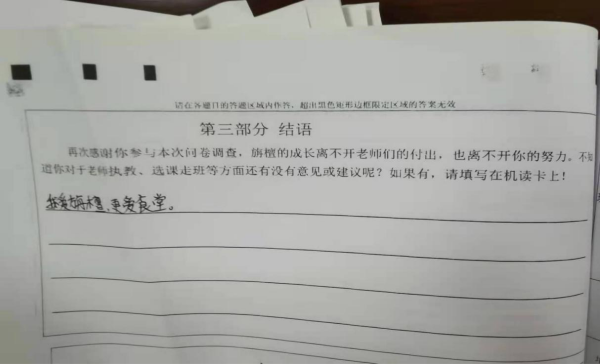 请在各题目的答题区域内作答，超出黑色矩形边框限定区域的答案无效
第三部分 结语
再次感谢你参与本次问卷调查，旃檀的成长离不开老师们的付出，也离不开你的努力。不知
道你对于老师执教、选课走班等方面还有没有意见或建议呢？如果有，请填写在机读卡上！
我爱旃檀，更爱食堂。